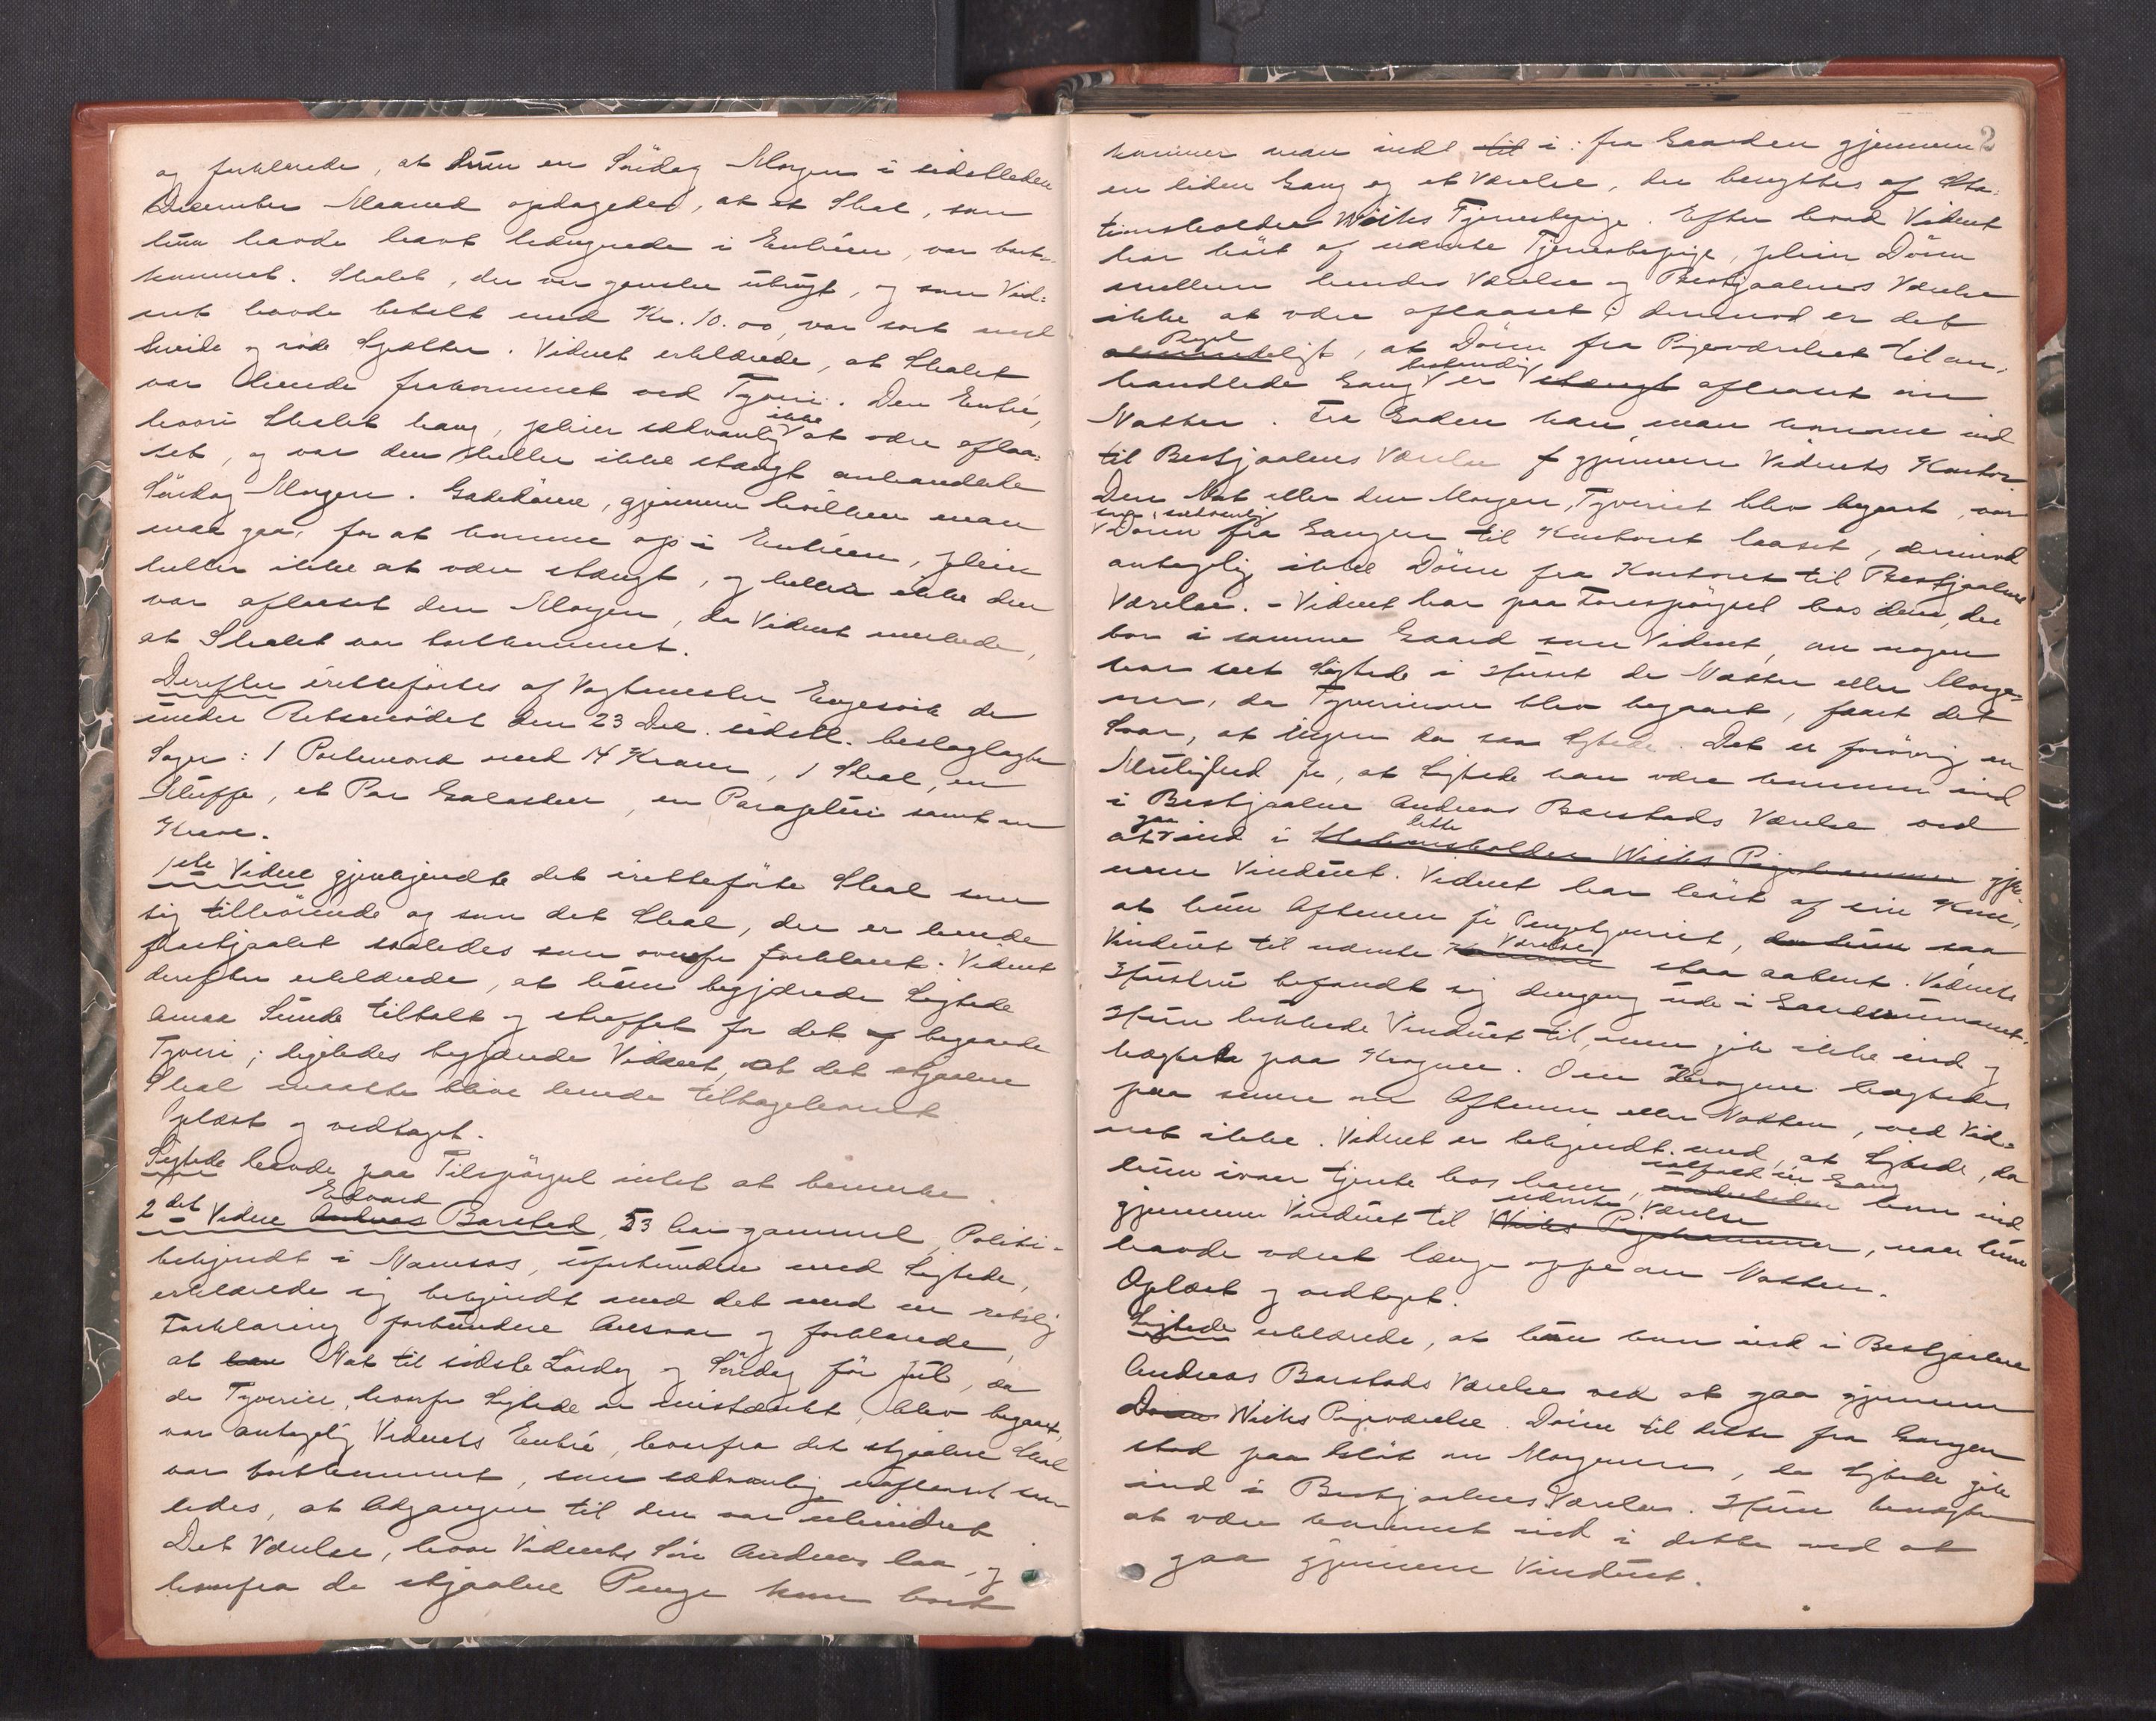 og forklarede, at hun en Söndag Morgen i sidstleden
December Maaned opdagede, at et Shal, som
hun havde havt hængende i Entréen, var bort-
kommet. Shalet, der var ganske ubrugt, og som Vid-
net havde betalt med Kr. 10.00, var sort med
hvide og röde Spætter. Vidnet erklærede, at Shalet
var hende frakommet ved Tyveri. Den Entré,
hvori Shalet hang, pleier sædvanlig ikke at være aflaa-
set, og var den heller ikke stængt omhandlede
Söndag Morgen. Gadedören, gjennem hvilken man
maa gaa, for at komme op i Entréen, pleier
heller ikke at være stængt, og heller ikke den
var aflaaset den Morgen, da Vidnet mærkede,
at Shalet var bortkommet.
Derefter irettefördes af Vagtmester Engesvik de
under Retsmödet den 23 Dec. sidstl. beslaglagte
Sager: 1 Portemonæ med 14 Kroner, 1 Shal, en
Muffe, et Par Galoscher, en Paraply samt en
Krave.
1ste Vidne gjenkjendte det iretteförte Shal som
sig tilhörende og som det Shal, der er hende
frastjaalet saaledes som ovenfor forklaret. Vidnet
derefter erklærede, at hun begjærede Sigtede
Anna Sunde tiltalt og straffet for det af begaaede
Tyveri; ligeledes begjærede Vidnet, at det stjaalne
Shal maatte blive hende tilbageleveret
Oplæst og vedtaget.
Sigtede havde paa Tilspörgsel intet at bemerke.
2det Vidne Andreas Edvard Barstad, 53 Aar gammel, Politi-
betjendt i Namsos, uforbunden med Sigtede,
erklærede sig bekjendt med det med en retslig
Forklaring forbundne Ansvar og forklarede,
at han Nat til sidste Lördag og Söndag för Jul, da
de Tyverier, hvorfor Sigtede er mistænkt, blev begaaet,
var antagelig Vidnets Entré, hvorfra det stjaalne Shal
var bortkommet, som sædvanlig uaflaaset saa-
ledes, at Adgangen til den var uhindret
Det Værelse, hvor Vidnets Sön Andreas laa, og
hvorfra de stjaalne Penge kom bort
2
kommer man ind til i: fra Gaarden gjennem
en liden Gang og et Værelse, der benyttes af Sta-
tionsholder Wiiks Tjenestepige. Efter hvad Vidnet
har hört af nævnte Tjenestepige, pleier Dören
mellem hendes Værelse og Bestjaalnes Værelse
ikke at være aflaaset; derimod er det
almindeligt Regel, at Dören fra Pigeværelset til om-
handlede Gang bestandig er stængt aflaaset om
Natten. Fra Gaden kan man komme ind
til Bestjaalnes Værelse gjennem Vidnets Kontor.
Den Nat eller den Morgen, Tyveriet blev begaaet, var
som sædvanlig Dören fra Gangen til Kontoret laaset, derimod
antagelig ikke Dören fra Kontoret til Bestjaalnes
Værelse. - Vidnet har paa Forespörgsel hos dem, der
bor i samme Gaard som Vidnet, om nogen
har seet Sigtede i Huset de Nætter eller Morge-
ner, da Tyverierne blev begaaet, faaet det
Svar, at ingen da saa Sigtede. Det er forövrig en
Mulighed for, at Sigtede kan være kommen ind
i Bestjaalne Andreas Barstads Værelse ved
at gaa ind i Stationsholder Wiiks Pigekammer dette gjen-
nem Vinduet. Vidnet har hört af sin Kone,
at hun Aftenen för Pengetyveriet, da hun saa
Vinduet til nævnte Kammer Værelse staa aabent. Vidnets
Hustru befandt sig dengang ude i Gaardsrummet.
Hun lukkede Vinduet til, men gik ikke ind og
hægtede paa Krogene. Om Krogene hægtedes
paa senere om Aftenen eller Natten, ved Vid-
net ikke. Vidnet er bekjendt med, at Sigtede, da
hun ivaar tjente hos ham, undertiden ialfald en Gang kom ind
gjennem Vinduet til Wiiks Pigekammer nævnte Værelse, naar hun
havde været længe oppe om Natten.
Oplæst og vedtaget.
Sigtede erklærede, at hun kom ind i Bestjaalne
Andreas Barstads Værelse ved at gaa gjennem
Dören Wiiks Pigeværelse. Dören til dette fra Gangen
stod paa Klöt om Morgenen, da Sigtede gik
ind i Bestjaalnes Værelse. Hun benægter
at være kommet ind i dette ved at
gaa gjennem Vinduet.